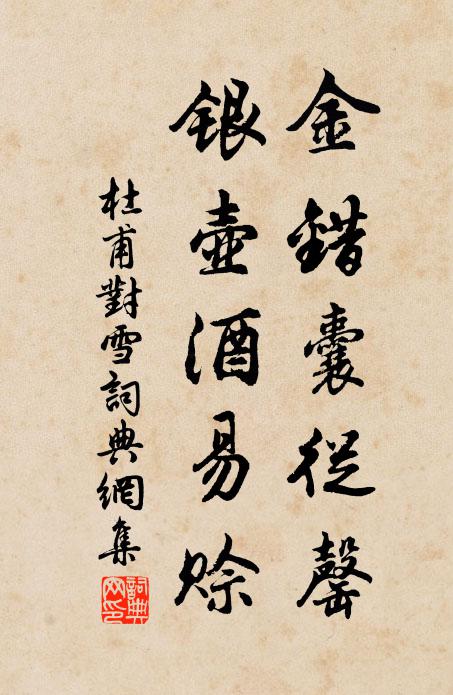 金錯囊從罄
銀壺酒易賒
杜甫對雪詞典網集
詞典网印